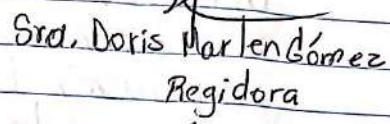 Sra. Doris Marlen Gómez
Regidora